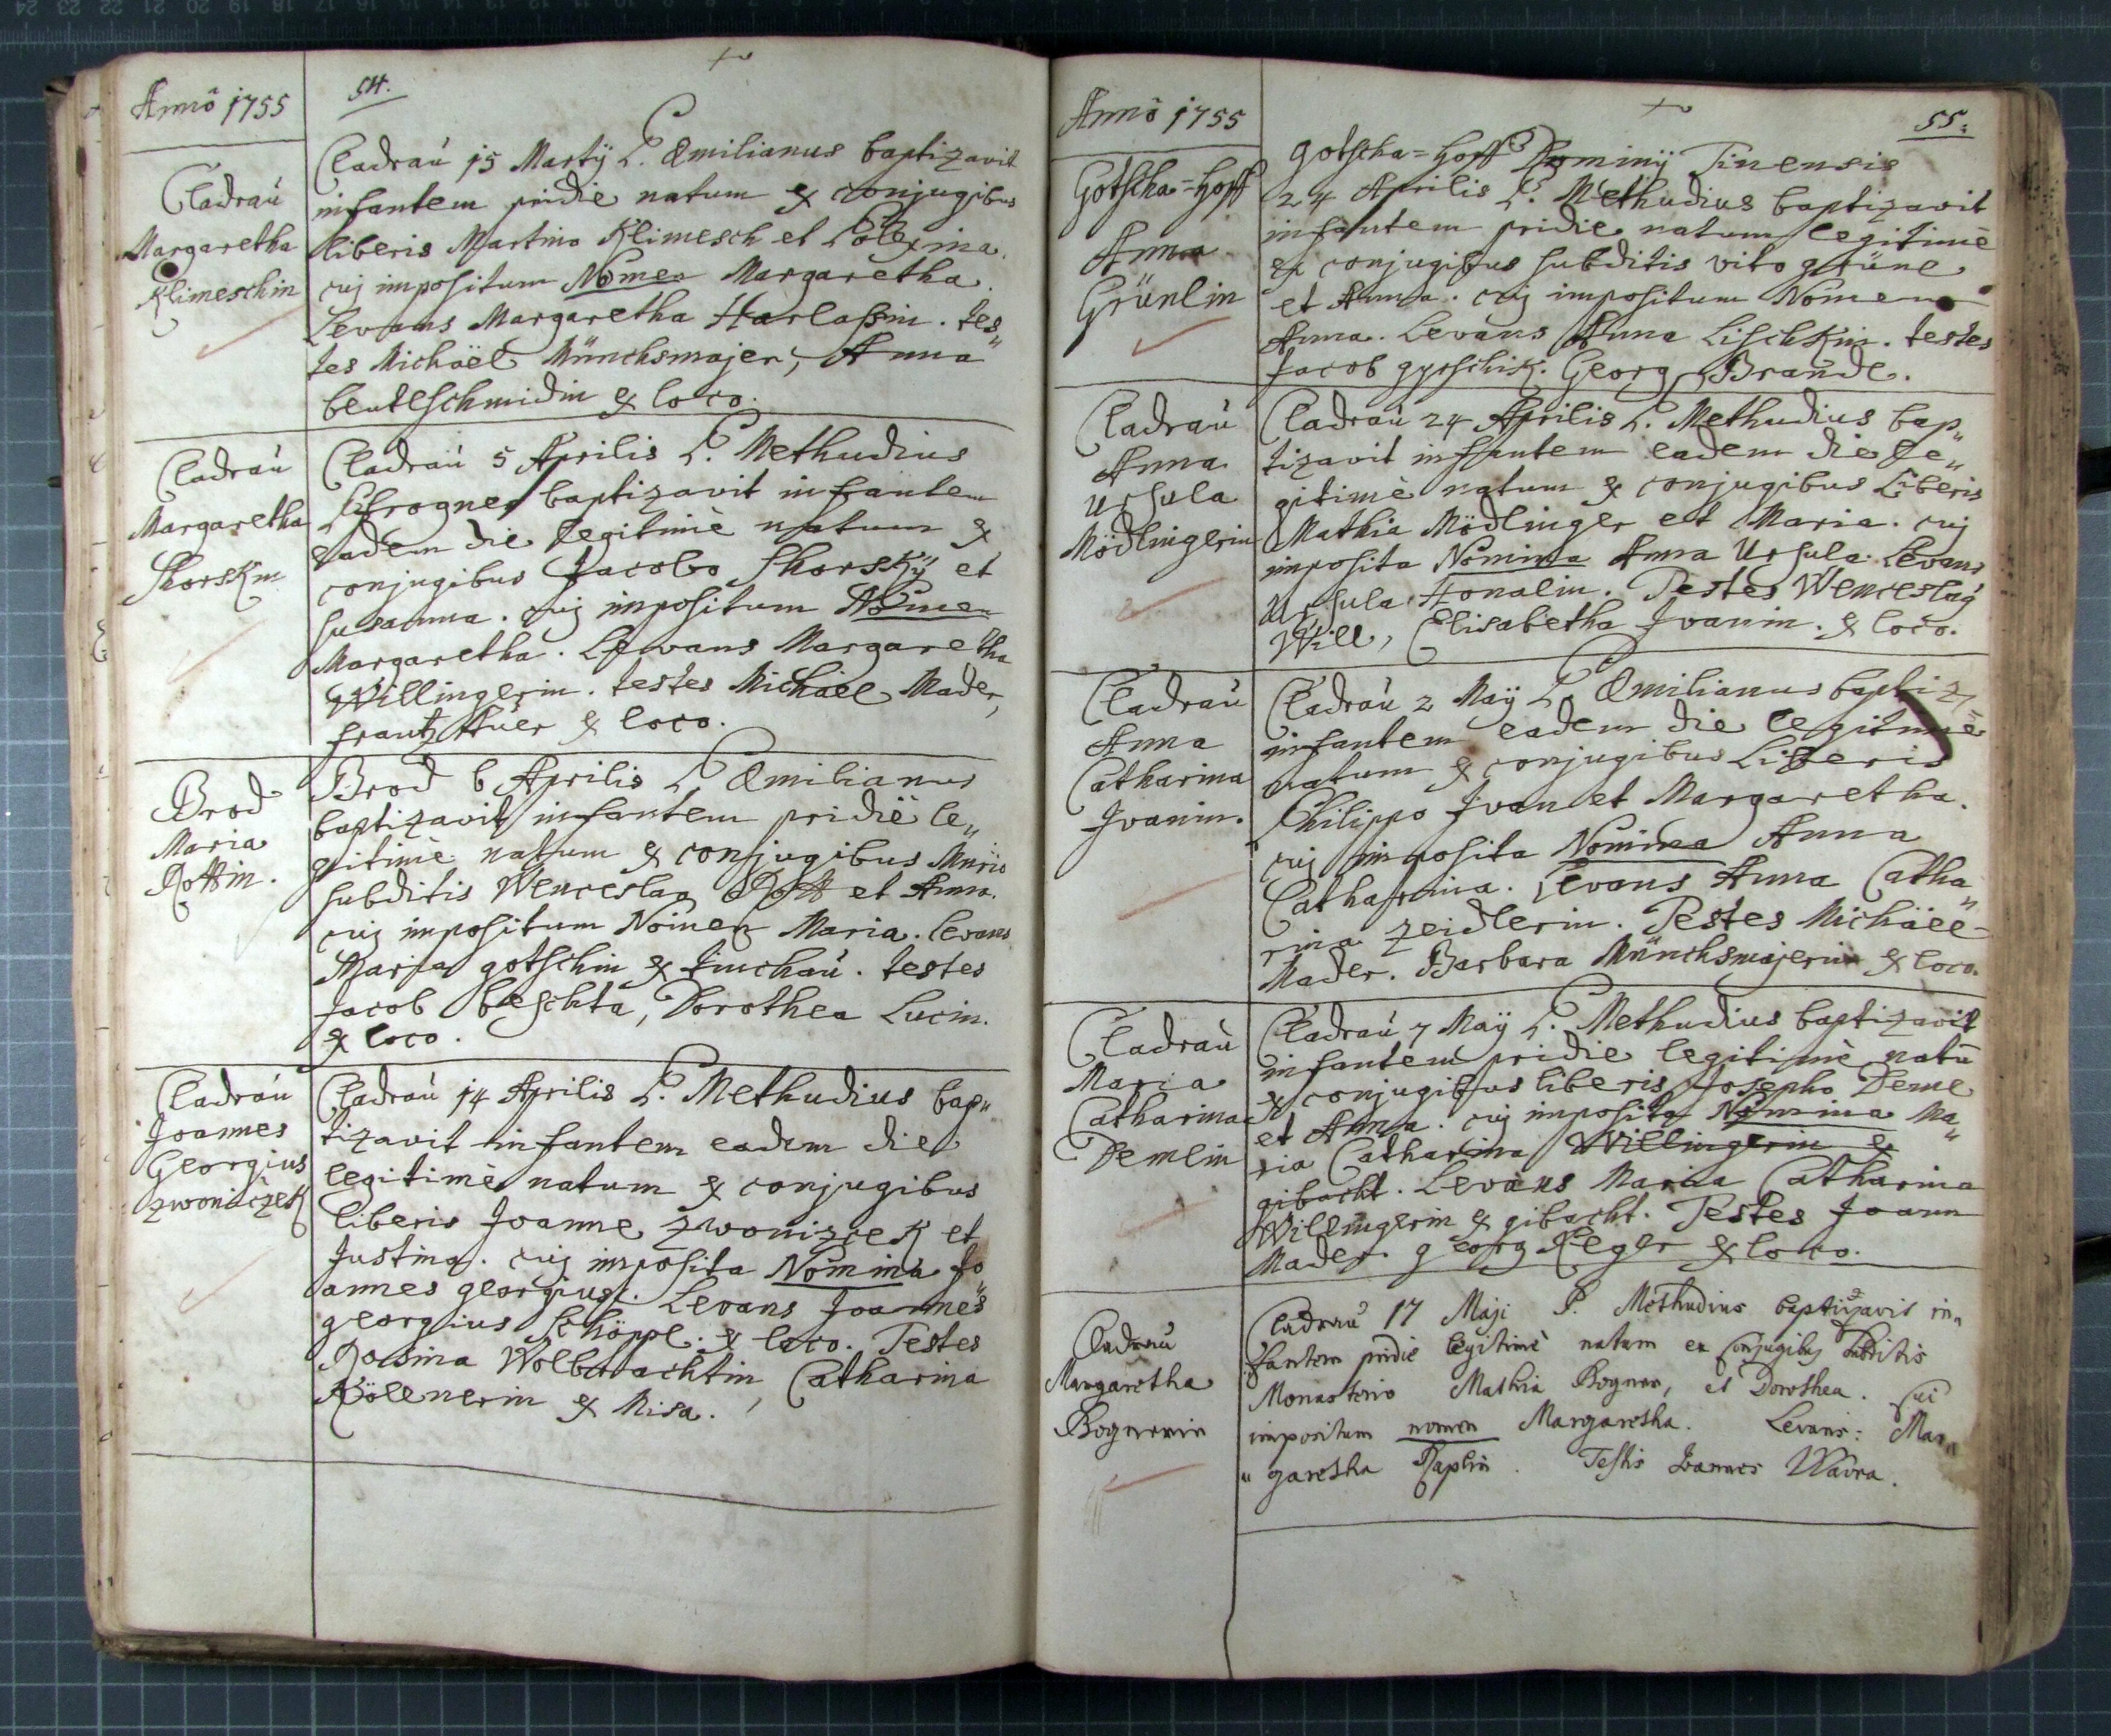 Anno 1755
54.
Cladrau
Margaretha
Klimeschin
Cladrau 15 Martÿ P. Æmilianus baptizavit
infantem pridie natum ex conjugibus
liberis Martino Klimesch et Polexina.
cuj impositum Nomen Margaretha.
Levans Margaretha Harlassin. tes„
tes Michaël Münchsmajer, Anna
beutlschmidin ex loco.
Cladrau
Margaretha
Skorskin
Cladrau 5 Aprilis P. Methudius
baptizavit infantem
eadem die legitimè natum ex
conjugibus Jacobo Skorskÿ et
susanna. cuj impositum Nomen
Margaretha. Levans Margaretha
Willingerin. testes Michäel Mader,
frantz Auer ex loco.
Brod
Maria
Rottin.
Brod 6 Aprilis P. Æmilianus
baptizavit infantem pridiè le„
gitimè natum ex conjugibus
subditis Wenceslao Rott et Anna.
cuj impositum Nomen Maria. levans
Maria gotschin ex tinchau. testes
Jacob beschta, Dorothea Lucin.
ex loco.
Cladrau
Joannes
Georgius
zwoniczek
Cladrau 14 Aprilis P. Methudius bap„
tizavit infantem eadem die
legitimè natum ex conjugibus
liberis Joanne zwonizcek et
Justina. cuj imposita Nomina Jo„
annes georgius. Levans Joannes
georgius schöppl. ex loco. Testes
Rosina Wolbrachtin, Catharina
Köllnerin ex Misa.
Anno 1755
55.
Gotscha=Hoff
Anna
Grünlin
gotscha=hoff Dominij Tinensis
24 Aprilis P. Methudius baptizavit
infantem pridie natum legitimè
ex conjugibus subditis vito grüne
et Anna. cuj impositum Nomen
Anna. Levans Anna Lischkin. testes
Jacob gyrschik. Georg Brandl.
Cladrau
Anna
Ursula
Mödlingerin
Cladrau 24 Aprilis P. Methudius bap„
tizavit infantem eadem die le„
gitimè natum ex conjugibus Liberis
Mathia Mödlinger et Maria. cuj
imposita Nomina Anna Ursula. Levans
Ursula Honalin. Testes Wenceslaÿ
Will, Elisabetha Jvanin. ex loco.
Cladrau
Anna
Catharina
Jvanin.
Cladrau 2 Maÿ P. Æmilianus baptiz:
infantem eadem die legitimè
natum ex conjugibus Liberis
Philippo Jvan et Margaretha.
cuj imposita Nomina Anna
Catharina. Levans Anna Catha„
rina zeidlerin. Testes Michäel
Mader. Barbara Münchsmajerin ex loco.
Cladrau
Maria
Catharina
Demlin
Cladrau 7 Maÿ P. Methudius baptizavit
infantem pridie legitimè natū
ex conjugibus liberis Josepho Deml
et Anna. cuj imposita Nomina Ma„
ria Catharina Willingerin ex
gibacht. Levans Maria Catharina
Willingerin ex gibacht. Testes Joann
Mader. georg Reger ex loco.
Cladrau
Margaretha
Bognerin
Cladrau 17 Maji P. Methudius baptizavit in„
fantem pridie legitimè natum ex Conjugibus Subditis
Monasterio Mathia Bogner, et Dorothea. Cui
impositum nomen Margaretha. Levans: Mar„
„garetha Raplin. Testis Joannes Wavra.